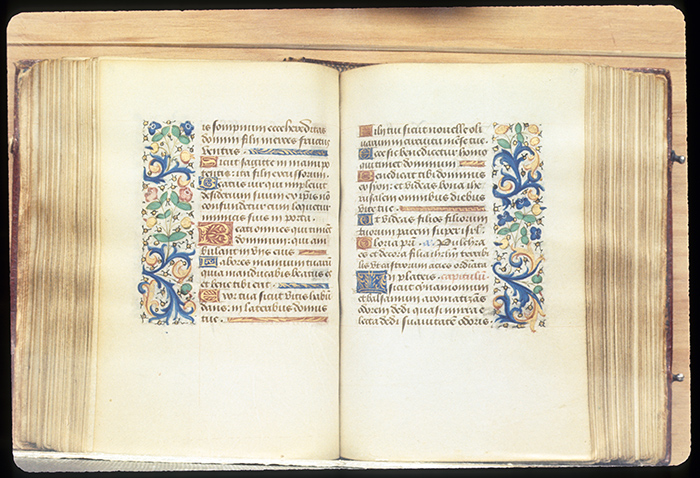 is sompnum ecce hereditas
domini filii merces fructus
ventris
Sicut sagitte in manu po
tentis: ita filii excussorum.
Beatus vir qui implevit
desiderium suum ex ipsis nō
confundetur cum loquetur
inimicis suis in porta.
Beati omnes qui timent
dominum: qui am
bulant in viis eius
Labores manuum tuarū
quia manducabis beatus es
et bene tibi erit.
Uxor tua sicut vitis habū
dans: in lateribus domus
tue.
Filii tui sicut novelle oli
varum in circuitu mēse tue.
Ecce sic benedicetur homo
qui timet dominum
Benedicat tibi dominus
ex syon: et videas bona ihe
rusalem omnibus diebus
vite tue.
Et videas filios filiorum
tuorum pacem super isrl.
Gloria pri. a. Pulchra
es et decora filia ihrlm terribi
lis ut castrorum acies ordinata
In plateis capitulū
sicut cynamomum
et balsamum aromatizās
odorem dedi quasi mirra e
lecta dedi suavitatē odoris.